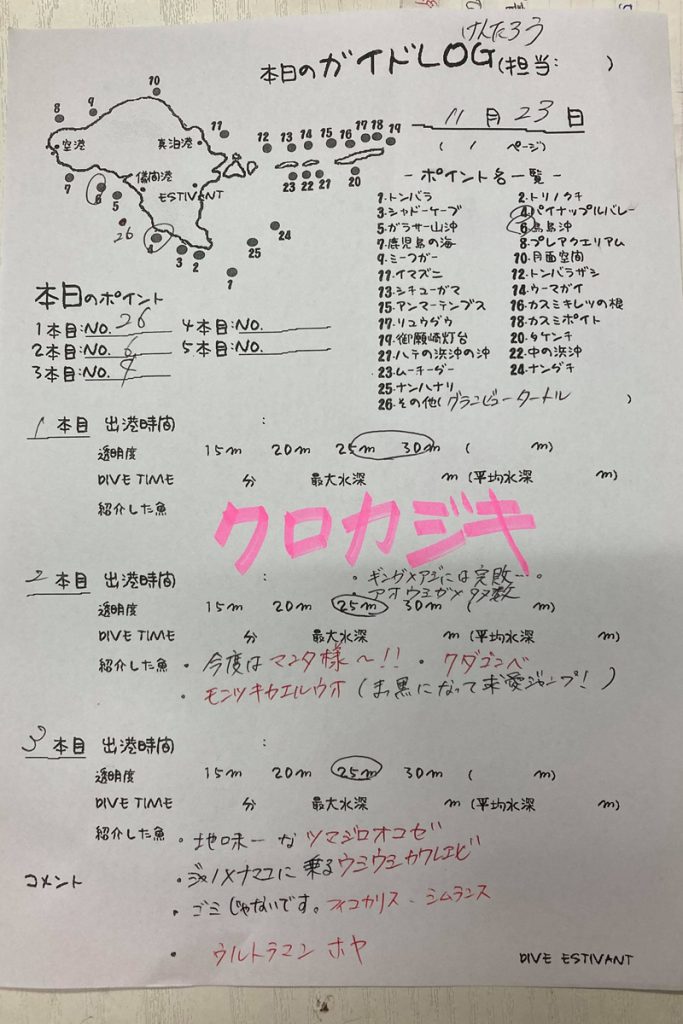 けんたろう
本日のガイドLOG(担当: )
11月23日
( 1 ページ)
10
8
9
11
空港
真泊港
儀間港
ESTIVANT
7
6
5
26
4
3
2
1
25
24
12 13 14 15 16 17 18 19
23 22 21 20
-ポイント名一覧-
1.トンバラ 2.トリノクチ
3.シャドーケーブ 4.パイナップルバレー
5.ガラサー山沖 6.鳥島沖
7.鹿児島の海 8.プレアクエリアム
9.ミーフガー 10.月面空間
11.イマズニ 12.トンバラザシ
13.シチューガマ 14.ウーマガイ
15.アンマーテンプス 16.カスミキレツの根
17.リュウダウ 18.カスミポイト
19.御願崎灯台 20.タケンチ
21.ハテの浜沖の沖 22.中の浜沖
23.ムーチーダー 24.ナンダキ
25.ナンハナリ
26.その他(グランビュータートル )
本日のポイント
1本目:NO. 26 4本目:NO.
2本目:NO. 6 5本目:NO.
3本目:NO. 4
1本目 出港時間 :
透明度 15m 20m 25m 30m ( m)
DIVE TIME 分 最大水深 m (平均水深 m)
紹介した魚 クロカジキ
2本目 出港時間 :
・ギンガメアジには完敗…。
・アオウミガメ多数
透明度 15m 20m 25m 30m ( m)
DIVE TIME 分 最大水深 m (平均水深 m)
紹介した魚 ・今度はマンタ様〜!! ・クダゴンベ
・モンツキカエルウオ(まっ黒になって求愛ジャンプ!)
3本目 出港時間 :
透明度 15m 20m 25m 30m ( m)
DIVE TIME 分 最大水深 m (平均水深 m)
紹介した魚 ・地味ーなツマジロオコゼ
・ジャノメナマコに乗るウミウシカクレエビ
コメント
・ゴミじゃないです。フィコカリス・シムランス
・ウルトラマンホヤ
DIVE ESTIVANT